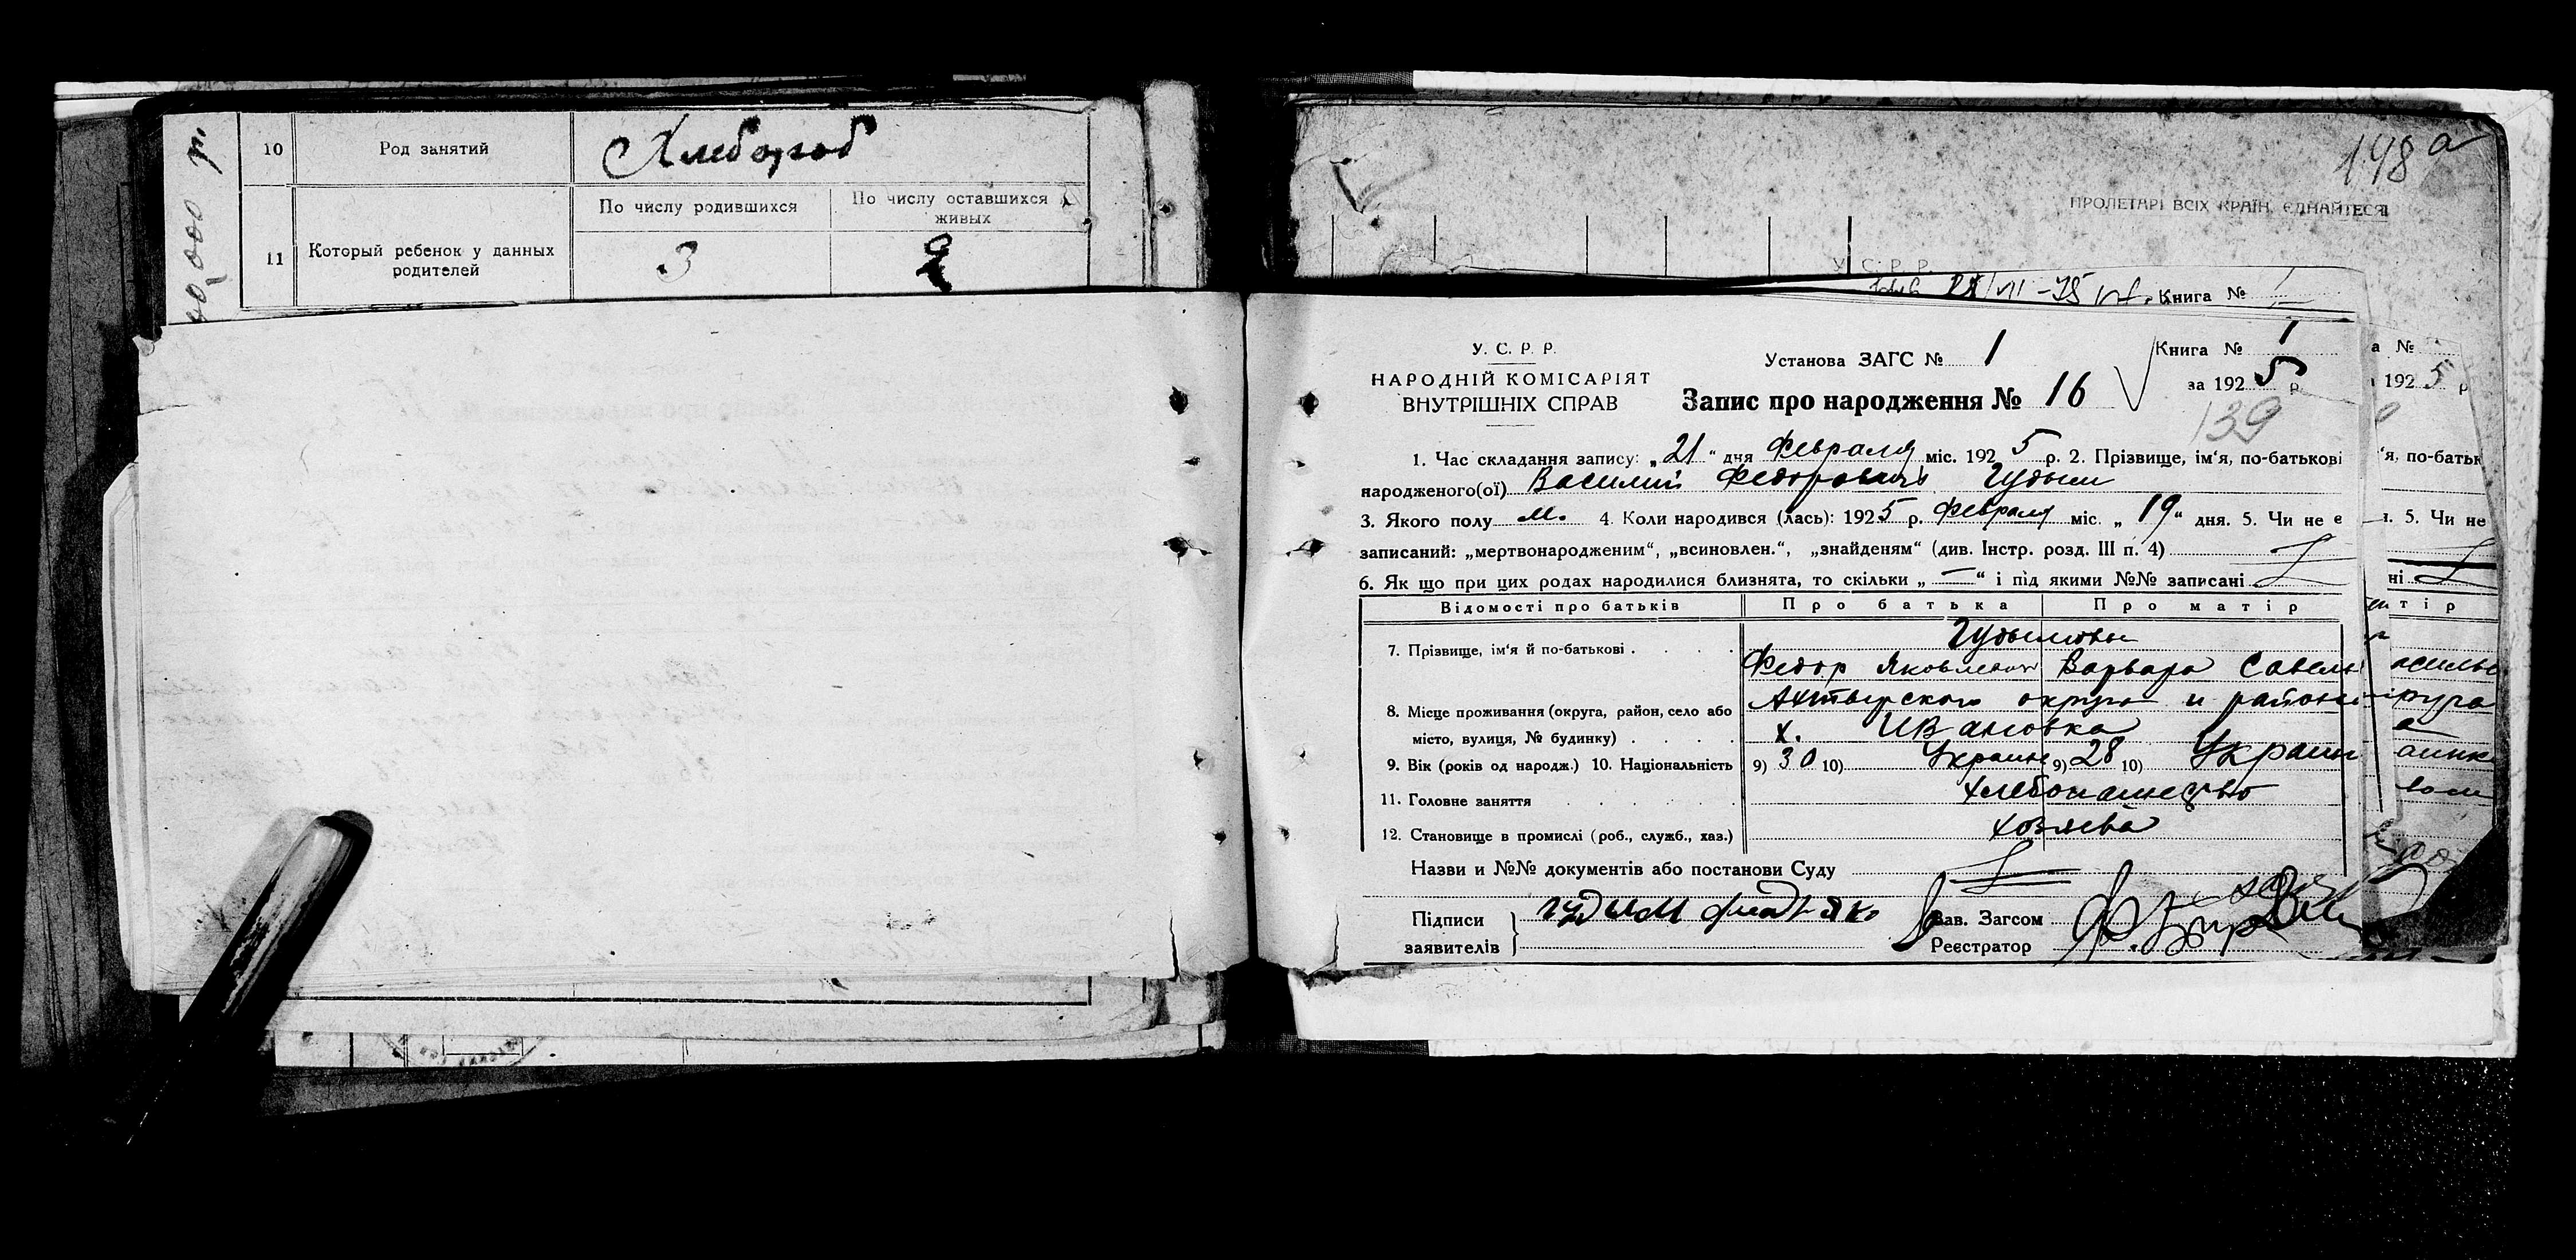 10 Род занятий Хлебороб
11 Который ребенок у данных родителей
По числу родившихся
По числу оставшихся живых
3 2
198 а
ПРОЛЕТАРІ ВСІХ КРАЇН, ЄДНАЙТЕСЯ
У. С. Р. Р.
Книга №
У. С. Р. Р.
НАРОДНІЙ КОМІСАРІЯТ
ВНУТРІШНІХ СПРАВ
Установа ЗАГС № 1
Запис про народження № 16
Книга № 1
за 1925 р.
139
1. Час складання запису: „21“ дня Февраля міс. 1925 р. 2. Прізвище, ім‘я, по-батькові
народженого(ої) Василий Федорович Гудым
3. Якого полу м. 4. Коли народився (лась): 1925 р. Февраля міс. „19“ дня. 5. Чи не є
записаний: „мертвонародженим“, „всиновлен.“, „знайденям“ (див. Інстр. розд. III п. 4)
6. Як що при цих родах народилися близнята, то скільки „—“ і під якими №№ записані
Відомості про батьків Про батька Про матір
7. Прізвище, ім‘я й по-батькові Гудымовы
Федор Яковлевич Варвара Савель
8. Місце проживання (округа, район, село або Ахтырского округа и района
місто, вулиця, № будинку) х. Ивановка
9. Вік (років од народж.) 10. Національність 9) 30 10) Украин 9) 28 10) Украин
11. Головне заняття хлебопашество
12. Становище в промислі (роб., служб., хаз.) хозяева
Назви и №№ документів або постанови Суду
Підписи
заявителів
гудым
Зав. Загсом
Реєстратор
а №
192 5 р
‘я, по-батьк
5. Чи не
ні
тір